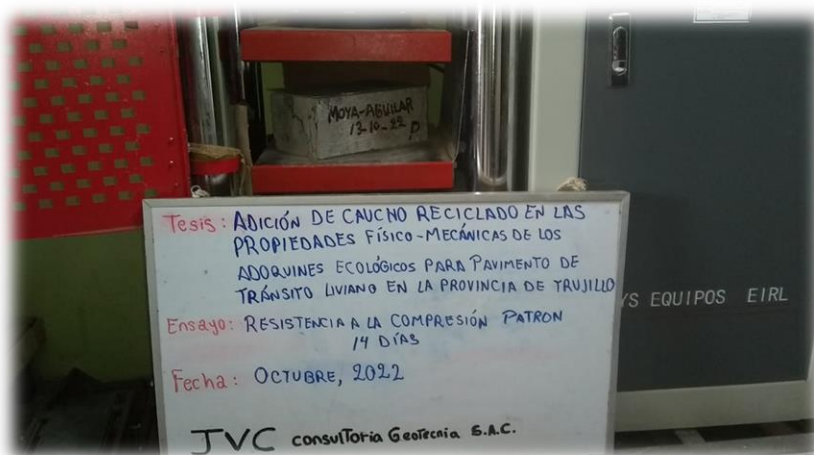 MOYA-AGUILAR
13-10-22 P
Tesis: ADICIÓN DE CAUCHO RECICLADO EN LAS
PROPIEDADES FÍSICO-MECÁNICAS DE LOS
ADOQUINES ECOLÓGICOS PARA PAVIMENTO DE
TRÁNSITO LIVIANO EN LA PROVINCIA DE TRUJILLO
Ensayo: RESISTENCIA A LA COMPRESIÓN PATRON
14 DÍAS
Fecha: OCTUBRE, 2022
JVC consulToria GeoTecnia S.A.C.
YS EQUIPOS EIRL